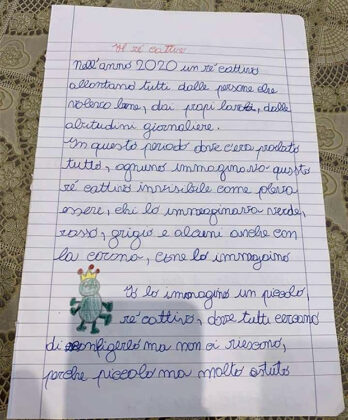 Il ré cattivo
Nell'anno 2020 un ré cattivo
allontana tutti dalle persone che
volevo bene, dai propi lavori, dalle
abitudini giornaliere.
In questo periodo dove c'era proibito
tutto, ognuno immaginava questo
ré cattivo invisibile come poteva
essere, chi lo immaginava verde,
rosso, grigio e alcuni anche con
la corona, come lo immagino
Io lo immagino un piccolo
ré cattivo, dove tutti cercano
di sconfigerlo ma non ci riescono,
perche piccolo ma molto astuto